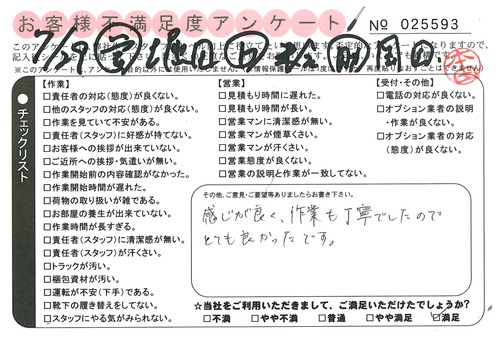 お客様不満足度アンケート
No 025593
7/29
チェックリスト
【作業】
□責任者の対応(態度)が良くない。
□他のスタッフの対応(態度)が良くない。
□作業を見ていて不安がある。
□責任者(スタッフ)に好感が持てない。
□お客様への挨拶が出来ていない。
□ご近所への挨拶・気遣いが無い。
□作業開始前の内容確認がなかった。
□作業開始時間が遅れた。
□荷物の取り扱いが雑である。
□お部屋の養生が出来ていない。
□作業時間が長すぎる。
□責任者(スタッフ)に清潔感が無い。
□責任者(スタッフ)が汗くさい。
□トラックが汚い。
□梱包資材が汚い。
□運転が不安(下手)である。
□靴下の履き替えをしてない。
□スタッフにやる気がみられない。
【営業】
□見積もり時間に遅れた。
□見積もり時間が長い。
□営業マンに清潔感が無い。
□営業マンが煙草くさい。
□営業マンが汗くさい。
□営業態度が良くない。
□営業の説明と作業が一致してない。
【受付・その他】
□電話の対応が良くない。
□オプション業者の説明
・作業が良くない。
□オプション業者の対応
(態度)が良くない。
その他、ご意見・ご要望等ありましたらお書き下さい。
感じが良く、作業も丁寧でしたので
とても良かったです。
☆当社をご利用いただきまして、ご満足いただけたでしょうか?
□不満 □やや不満 □普通 □やや満足 ☑満足